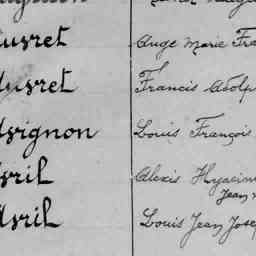 usret Ange Marie Fra
usret Francis Adolp
vrignon Louis François
vril Alexis Hyacin
Jean
Avril Louis Jean Jose